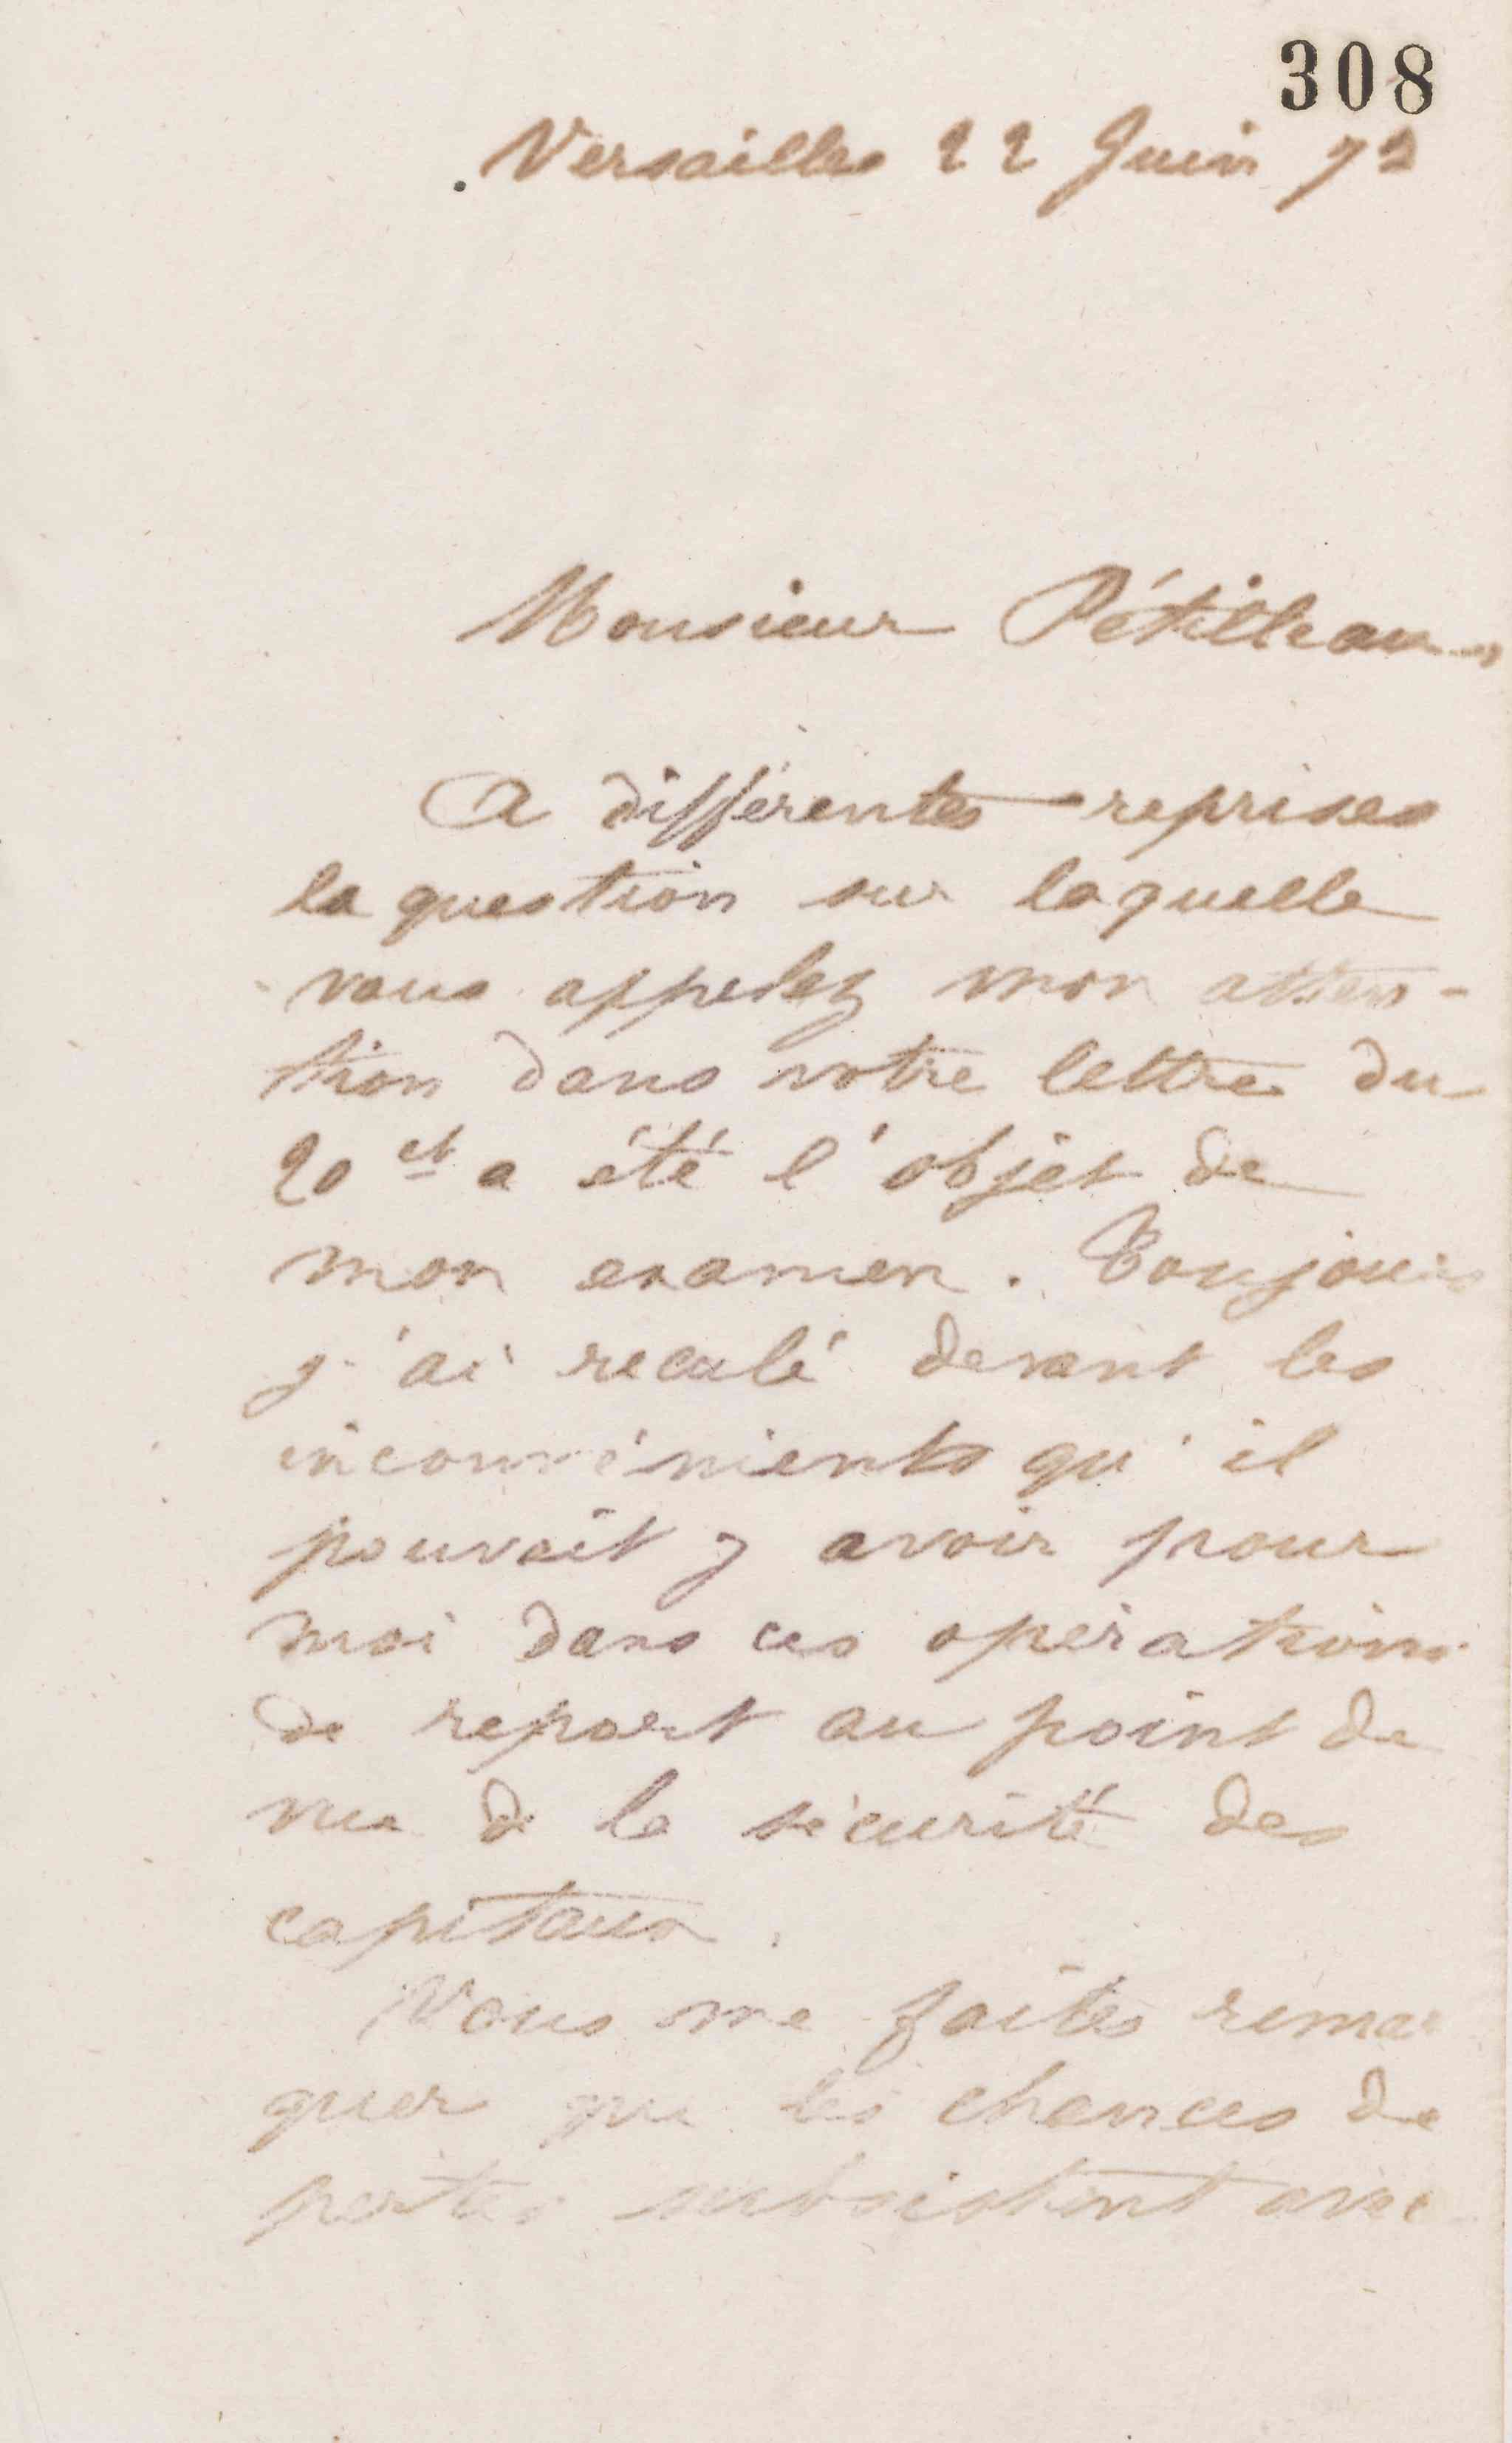 308
Versailles 22 Juin 72
Monsieur Pétilleau
A différentes reprises
la question sur laquelle
vous appelez mon atten-
tion dans votre lettre du
20 ct a été l'objet de
mon examen. Toujours
j'ai reculé devant les
inconvénients qu'il
pouvait y avoir pour
moi dans ces opérations
de report au point de
vue de la sécurité des
capitaux.
Vous me faites remar
quer que les chances de
pertes subsistent avec